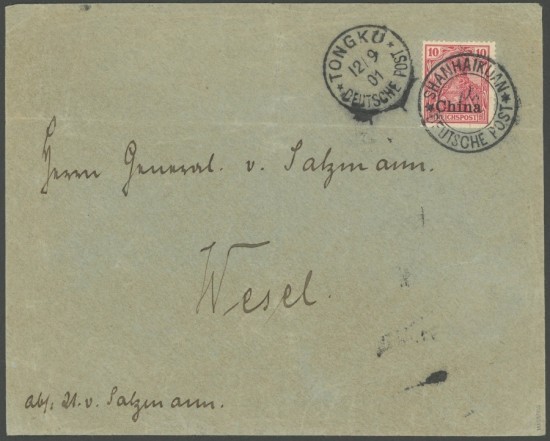 TONGKU
12/9
01
* DEUTSCHE POST *
10 10
SHANHAIKUAN
China
REICHSPOST
* DEUTSCHE POST *
Herrn General. v. Salzmann.
Wesel.
abs: v. Salzmann.